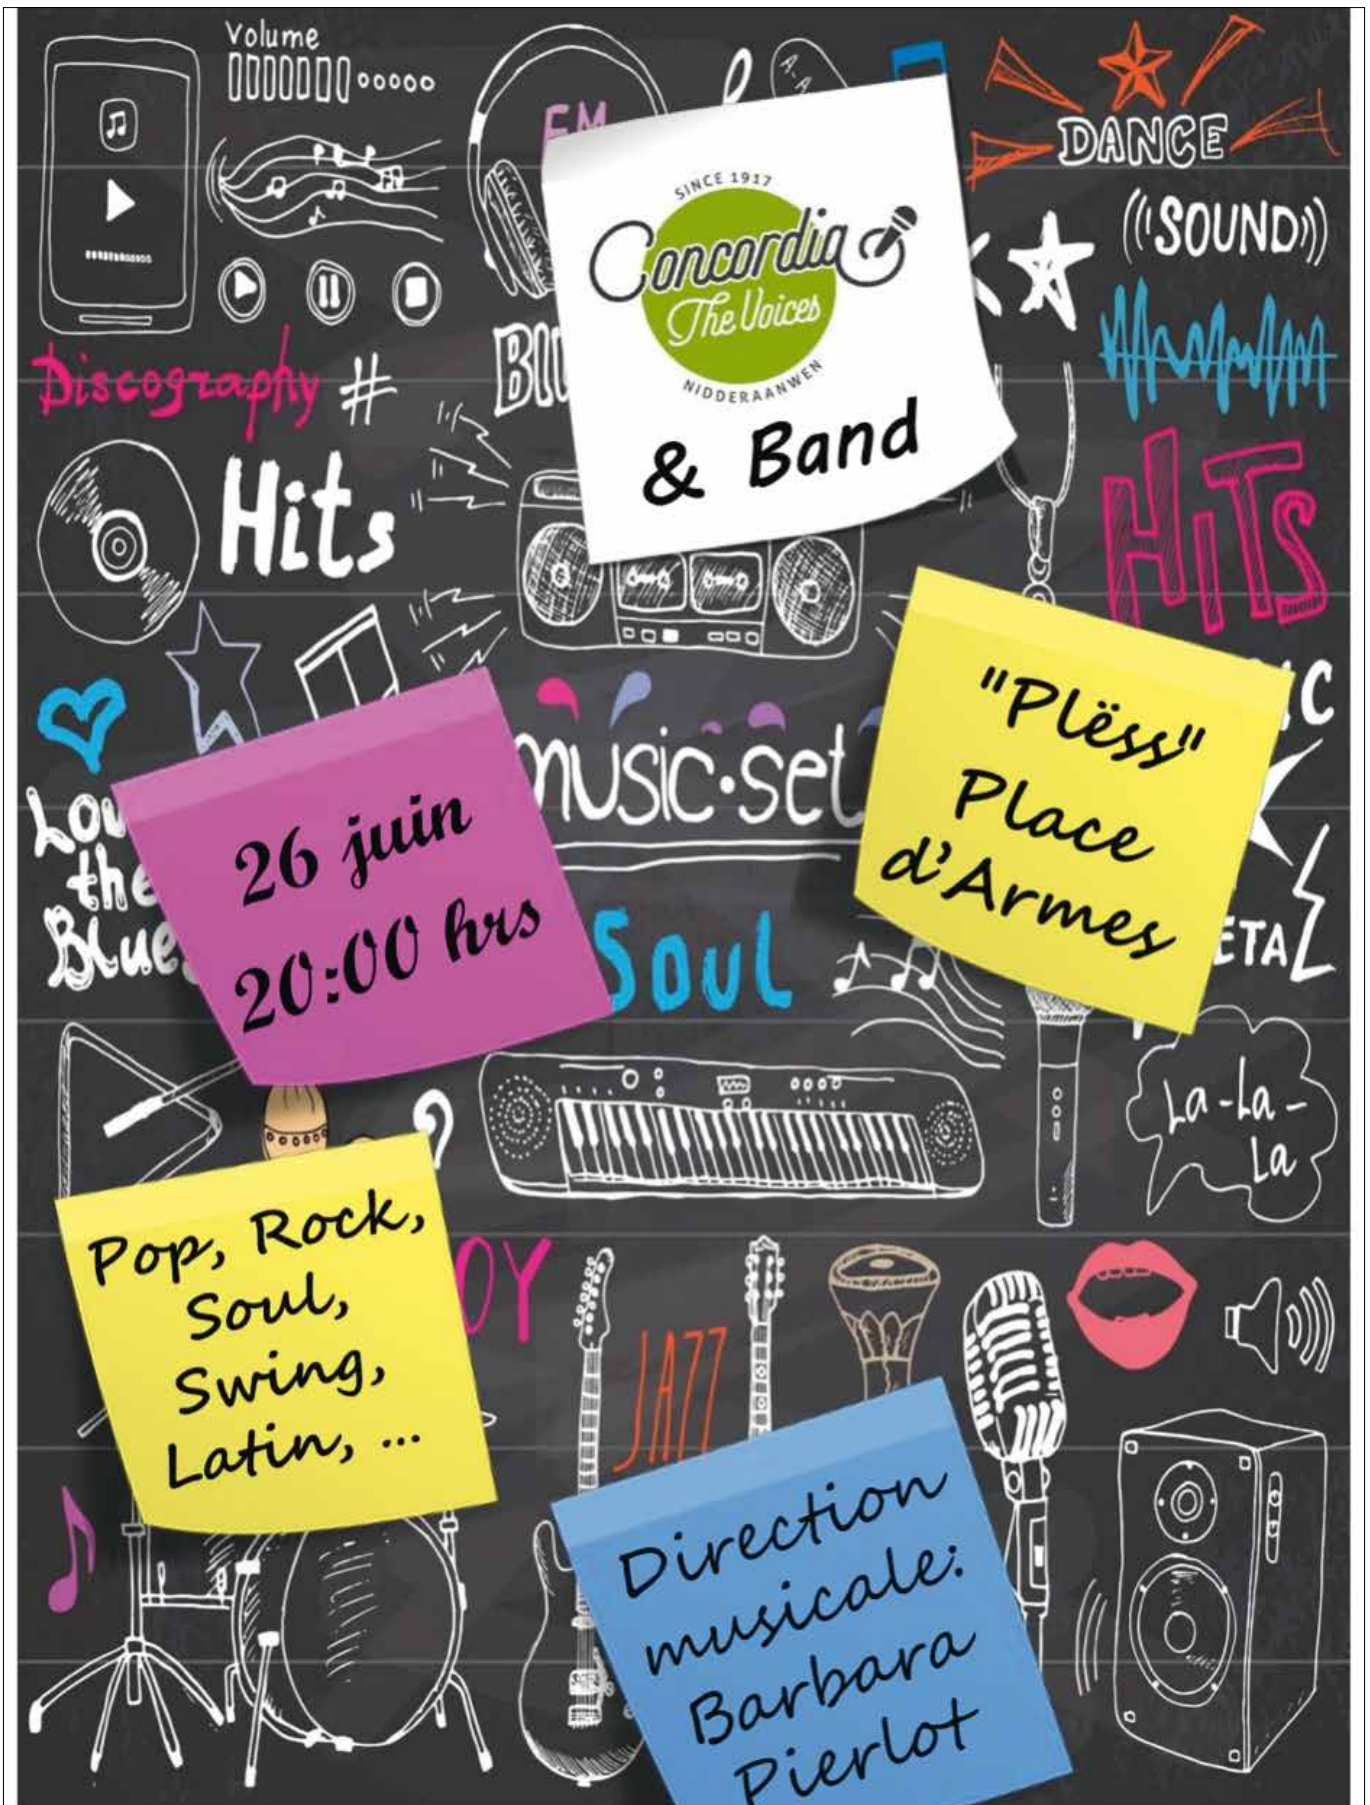 Volume
FM
A-A
DANCE
((SOUND))
SINCE 1917
Concordia
The Voices
NIDDERAANWEN
& Band
Discography #
Hits
HiTS
"Plëss"
Place
d'Armes
music·set
26 juin
20:00 hrs
the
SOUL
La-La-
La
Pop, Rock,
Soul,
Swing,
Latin, ...
JAZZ
Direction
musicale:
Barbara
Pierlot